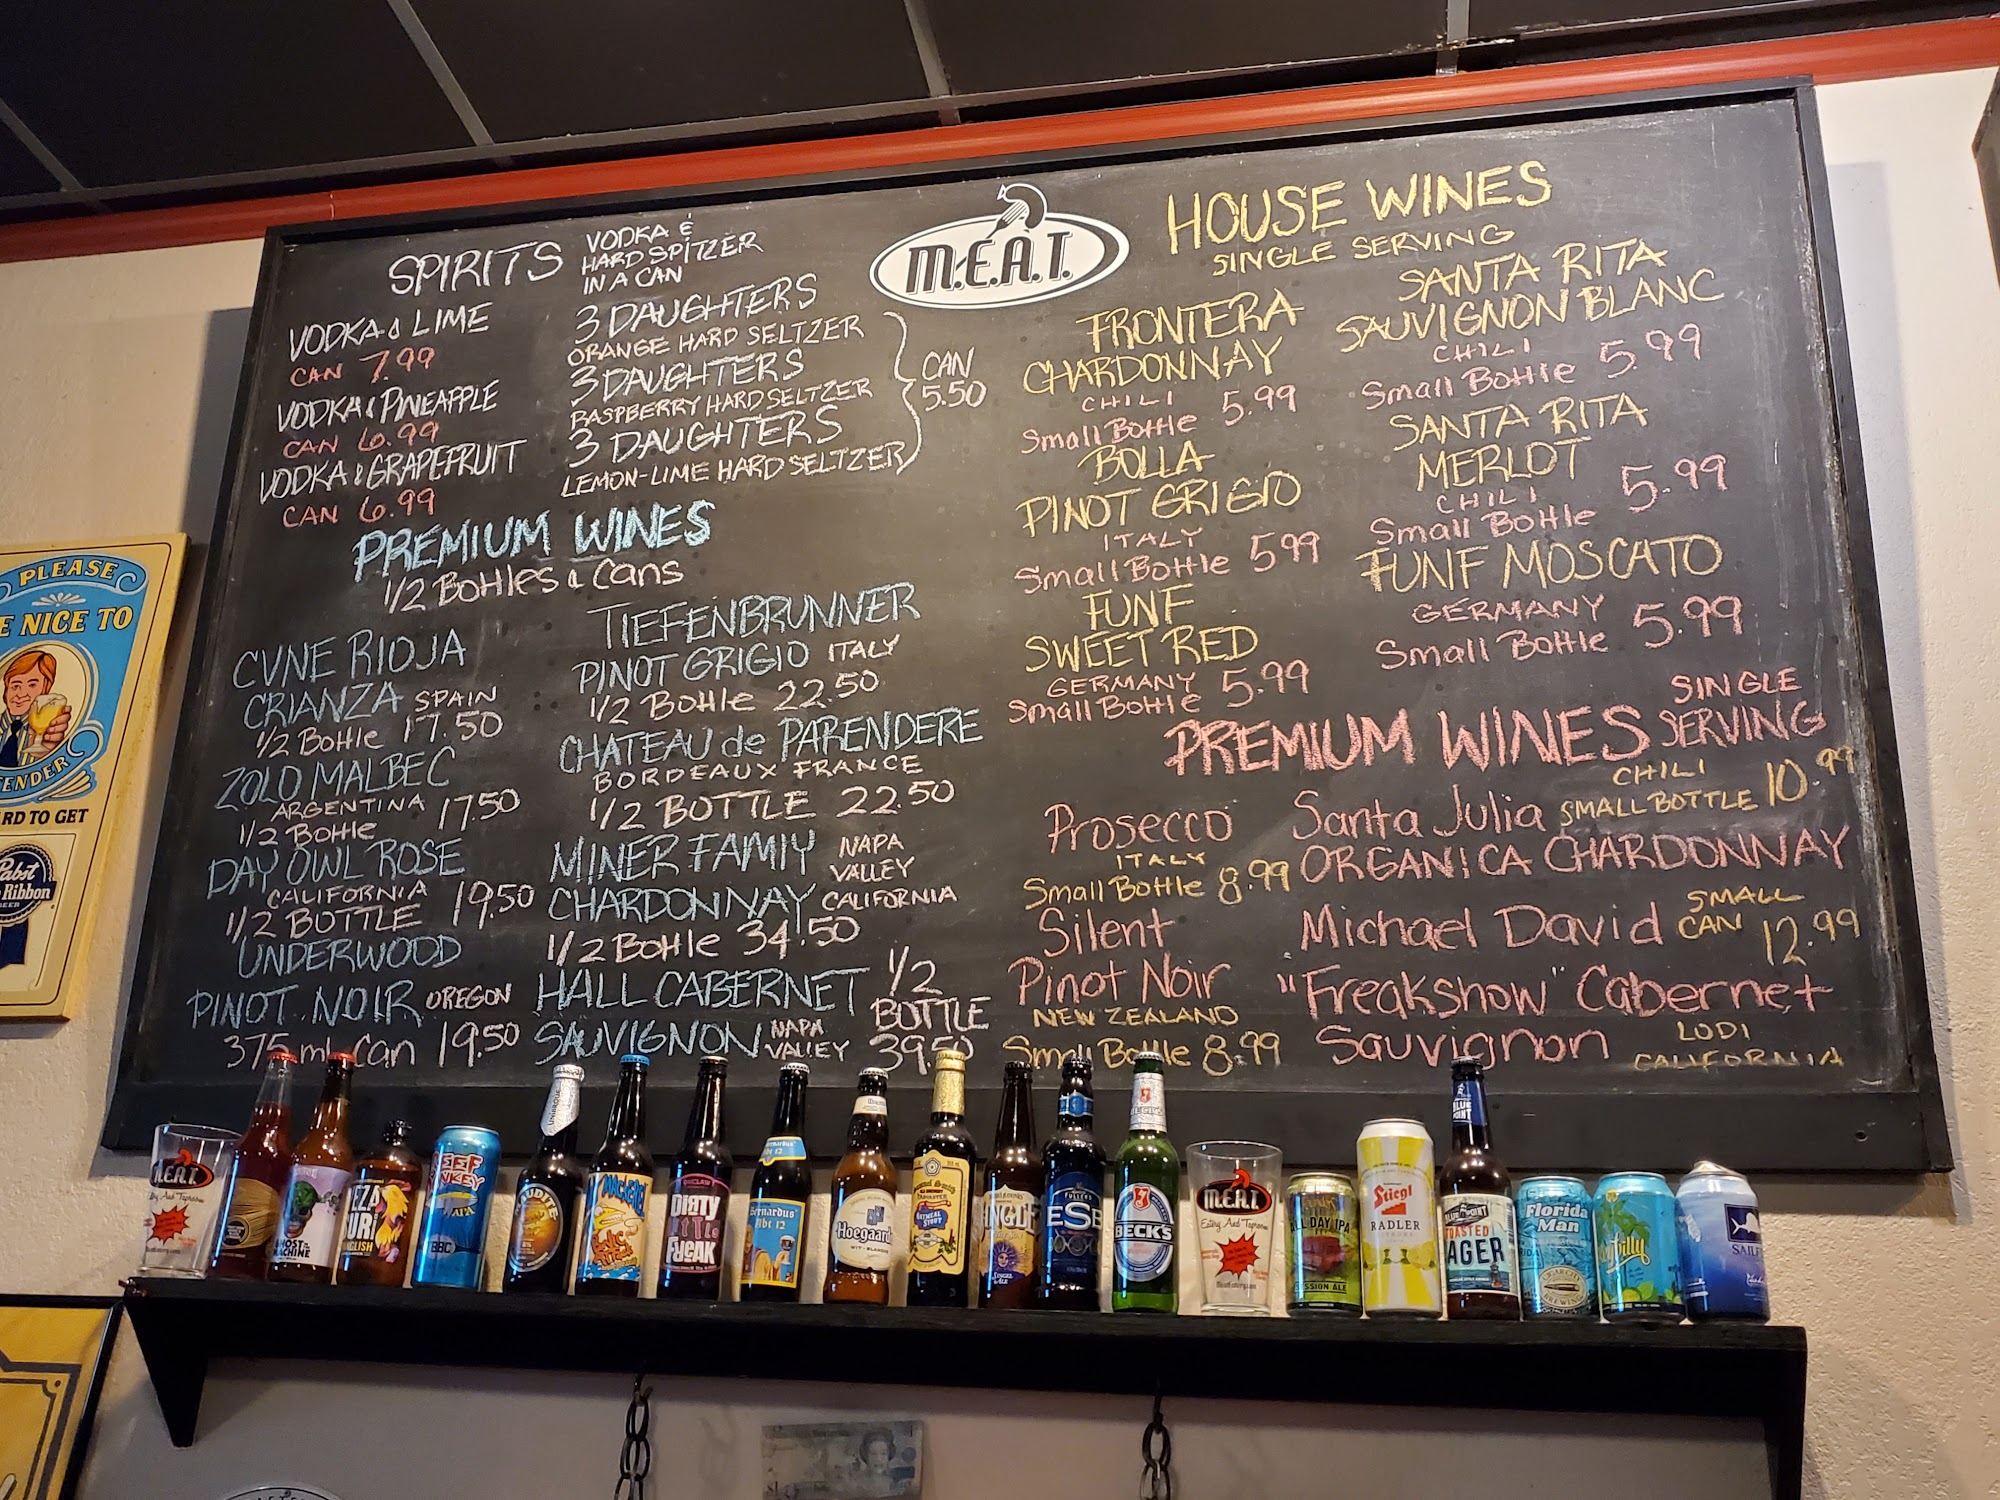 SPIRITS
VODKA &
HARD SPITZER
IN A CAN
VODKA & LIME
CAN 7.99
VODKA & PINEAPPLE
CAN 6.99
VODKA & GRAPEFRUIT
CAN 6.99
3 DAUGHTERS
ORANGE HARD SELTZER
3 DAUGHTERS
RASPBERRY HARD SELTZER
3 DAUGHTERS
LEMON-LIME HARD SELTZER
CAN
5.50
PREMIUM WINES
1/2 Bottles & Cans
CVNE RIOJA
CRIANZA SPAIN
1/2 Bottle 17.50
ZOLO MALBEC
ARGENTINA 17.50
1/2 Bottle
DAY OWL ROSE
CALIFORNIA 19.50
1/2 BOTTLE
UNDERWOOD
PINOT NOIR OREGON
375 ml Can 19.50
TIEFENBRUNNER
PINOT GRIGIO ITALY
1/2 Bottle 22.50
CHATEAU de PARENDERE
BORDEAUX FRANCE
1/2 BOTTLE 22.50
MINER FAMIY NAPA
VALLEY
CHARDONNAY CALIFORNIA
1/2 Bottle 34.50
HALL CABERNET 1/2
BOTTLE
SAUVIGNON NAPA
VALLEY 39.50
M.E.A.T.
HOUSE WINES
SINGLE SERVING
FRONTERA
CHARDONNAY
CHILI
Small Bottle 5.99
BOLLA
PINOT GRIGIO
ITALY
Small Bottle 5.99
FUNF
SWEET RED
GERMANY
Small Bottle 5.99
SANTA RITA
SAUVIGNON BLANC
CHILI
Small Bottle 5.99
SANTA RITA
MERLOT
CHILI
Small Bottle 5.99
FUNF MOSCATO
GERMANY
Small Bottle 5.99
PREMIUM WINES SINGLE
SERVING
Prosecco
ITALY
Small Bottle 8.99
Silent
Pinot Noir
NEW ZEALAND
Small Bottle 8.99
Santa Julia CHILI
SMALL BOTTLE 10.99
ORGANICA CHARDONNAY
Michael David SMALL
CAN 12.99
"Freakshow" Cabernet
Sauvignon LODI
CALIFORNIA
PLEASE
E NICE TO
ENDER
RD TO GET
Pabst
Ribbon
BEER
M.E.A.T.
Eatery And Taproom
HOST
MACHINE
EZA
SURE
ENGLISH
BEEF
IPA
BBC
UNIBROUE
AUDITE
DIRTY
FREAK
Bernardus
Abt 12
Hoegaarden
WIT-BLANCHE
OATMEAL
STOUT
FULLER'S
ESB
BECK'S
M.E.A.T.
Eatery And Taproom
ALL DAY IPA
SESSION ALE
Stiegl
RADLER
BLUE
POINT
BLUE POINT
TOASTED
LAGER
Florida
Man
CIGAR CITY
BREWING
SAILF